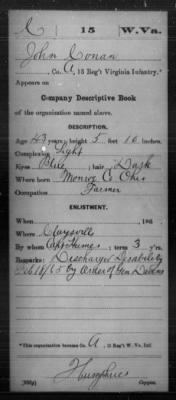 C 15 W.Va.
John Conan
Co. A, 15 Reg't Virginia Infantry.*
Appears on
Company Descriptive Book
of the organization named above.
DESCRIPTION.
Age 43 years; height 5 feet 10 inches.
Complexion Light
Eyes Blue; hair Dark
Where born Monroe Co. Ohio
Occupation Farmer
ENLISTMENT.
When , 186
Where Claysvill
By whom Capt Humes; term 3 y'rs.
Remarks: Discharged Disability
18/65 by Order of Gen
*This organization became Co. A, 15 Reg't W. Va. Inf.
Humphries
Copyist.